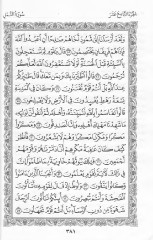 الجزء التاسع عشر
سورة النمل
وَلَقَدْ أَرْسَلْنَا إِلَىٰ ثَمُودَ أَخَاهُمْ صَالِحًا أَنِ اعْبُدُوا اللَّهَ
فَإِذَا هُمْ فَرِيقَانِ يَخْتَصِمُونَ ٤٥ قَالَ يَٰقَوْمِ لِمَ تَسْتَعْجِلُونَ
بِالسَّيِّئَةِ قَبْلَ الْحَسَنَةِ لَوْلَا تَسْتَغْفِرُونَ اللَّهَ لَعَلَّكُمْ
تُرْحَمُونَ ٤٦ قَالُوا اطَّيَّرْنَا بِكَ وَبِمَن مَّعَكَ قَالَ طَٰئِرُكُمْ
عِندَ اللَّهِ بَلْ أَنتُمْ قَوْمٌ تُفْتَنُونَ ٤٧ وَكَانَ فِي الْمَدِينَةِ
تِسْعَةُ رَهْطٍ يُفْسِدُونَ فِي الْأَرْضِ وَلَا يُصْلِحُونَ ٤٨
قَالُوا تَقَاسَمُوا بِاللَّهِ لَنُبَيِّتَنَّهُ وَأَهْلَهُ ثُمَّ لَنَقُولَنَّ لِوَلِيِّهِ
مَا شَهِدْنَا مَهْلِكَ أَهْلِهِ وَإِنَّا لَصَٰدِقُونَ ٤٩ وَمَكَرُوا مَكْرًا
وَمَكَرْنَا مَكْرًا وَهُمْ لَا يَشْعُرُونَ ٥٠ فَانظُرْ كَيْفَ
كَانَ عَٰقِبَةُ مَكْرِهِمْ أَنَّا دَمَّرْنَٰهُمْ وَقَوْمَهُمْ أَجْمَعِينَ ٥١
فَتِلْكَ بُيُوتُهُمْ خَاوِيَةً بِمَا ظَلَمُوا إِنَّ فِي ذَٰلِكَ لَآيَةً لِّقَوْمٍ
يَعْلَمُونَ ٥٢ وَأَنجَيْنَا الَّذِينَ آمَنُوا وَكَانُوا يَتَّقُونَ ٥٣
وَلُوطًا إِذْ قَالَ لِقَوْمِهِ أَتَأْتُونَ الْفَٰحِشَةَ وَأَنتُمْ
تُبْصِرُونَ ٥٤ أَئِنَّكُمْ لَتَأْتُونَ الرِّجَالَ شَهْوَةً
مِّن دُونِ النِّسَاءِ بَلْ أَنتُمْ قَوْمٌ تَجْهَلُونَ ٥٥
٣٨١